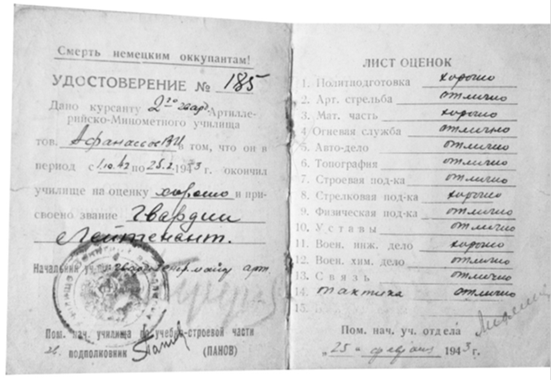 Смерть немецким оккупантам!
УДОСТОВЕРЕНИЕ № 185
Дано курсанту 2го гвар. Артилле-
рийско-Минометного училища
тов. в том, что он в
период с по 1943 окончил
училище на оценку хорошо и при-
своено звание Гвардии
Лейтенант.
Начальник
Пом. нач. училища по учебно-строевой части
подполковник (ПАНОВ)
ЛИСТ ОЦЕНОК
1. Политподготовка хорошо
2. Арт. стрельба отлично
3. Мат. часть хорошо
4. Огневая служба отлично
5. Авто-дело отлично
6. Топография отлично
7. Строевая под-ка отлично
8. Стрелковая под-ка хорошо
9. Физическая под-ка отлично
10. Уставы отлично
11. Воен. инж. дело хорошо
12. Воен. хим. дело отлично
13. Связь отлично
14. тактика отлично
15.
Пом. нач. уч. отдела
„25" февраля 1943 г.